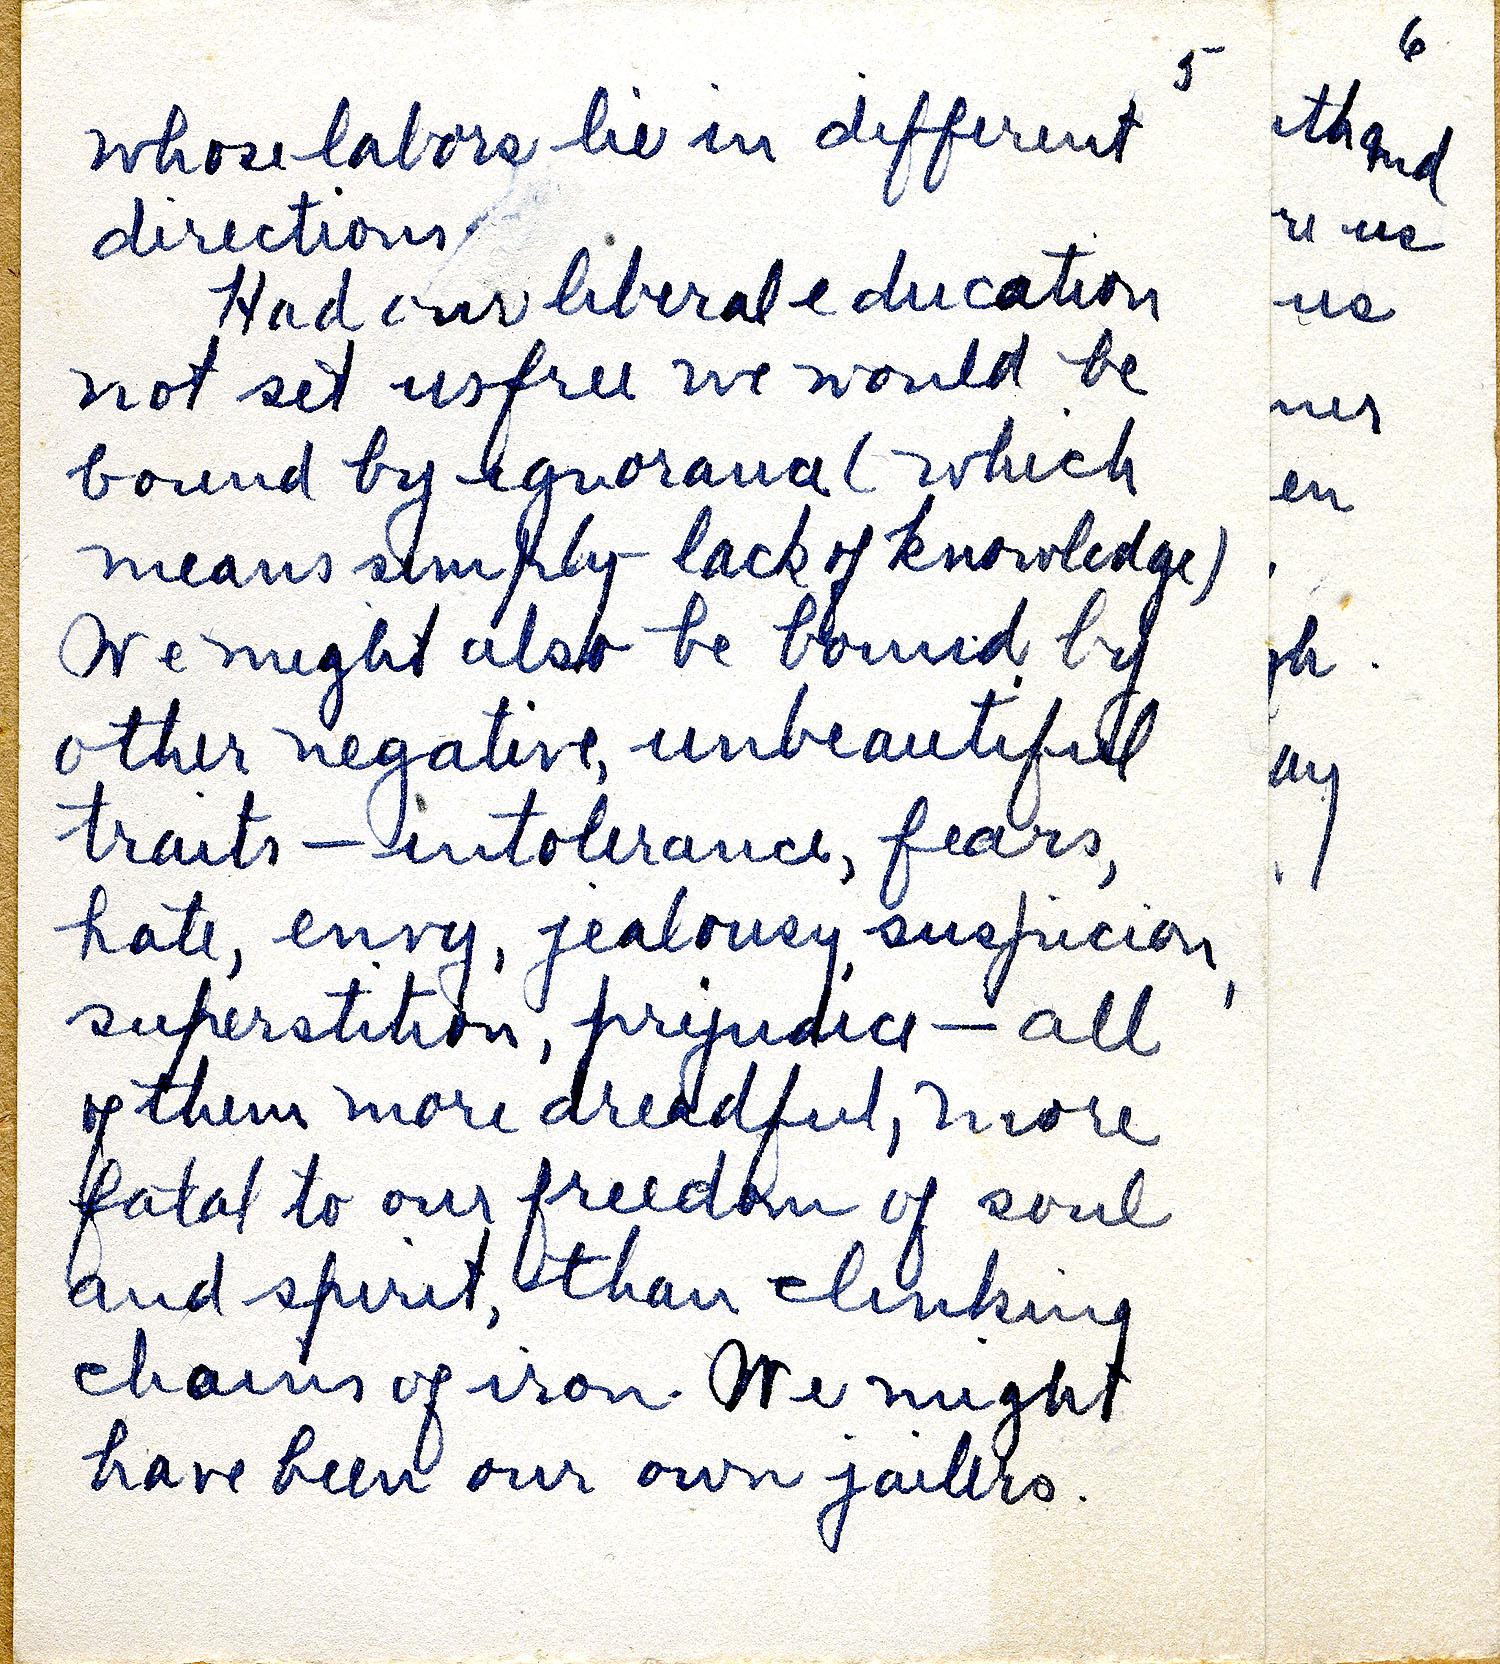 5
whose labors lie in different
directions.
Had our liberal education
not set us free we would be
bound by ignorance (which
means simply lack of knowledge)
We might also be bound by
other negative, unbeautiful
traits — intolerance, fears,
hate, envy, jealousy, suspicion,
superstition, prejudice — all
of them more dreadful, more
fatal to our freedom of soul
and spirit, than clinking
chains of iron. We might
have been our own jailers.
6
and
re us
us
ner
en
gh.
ay